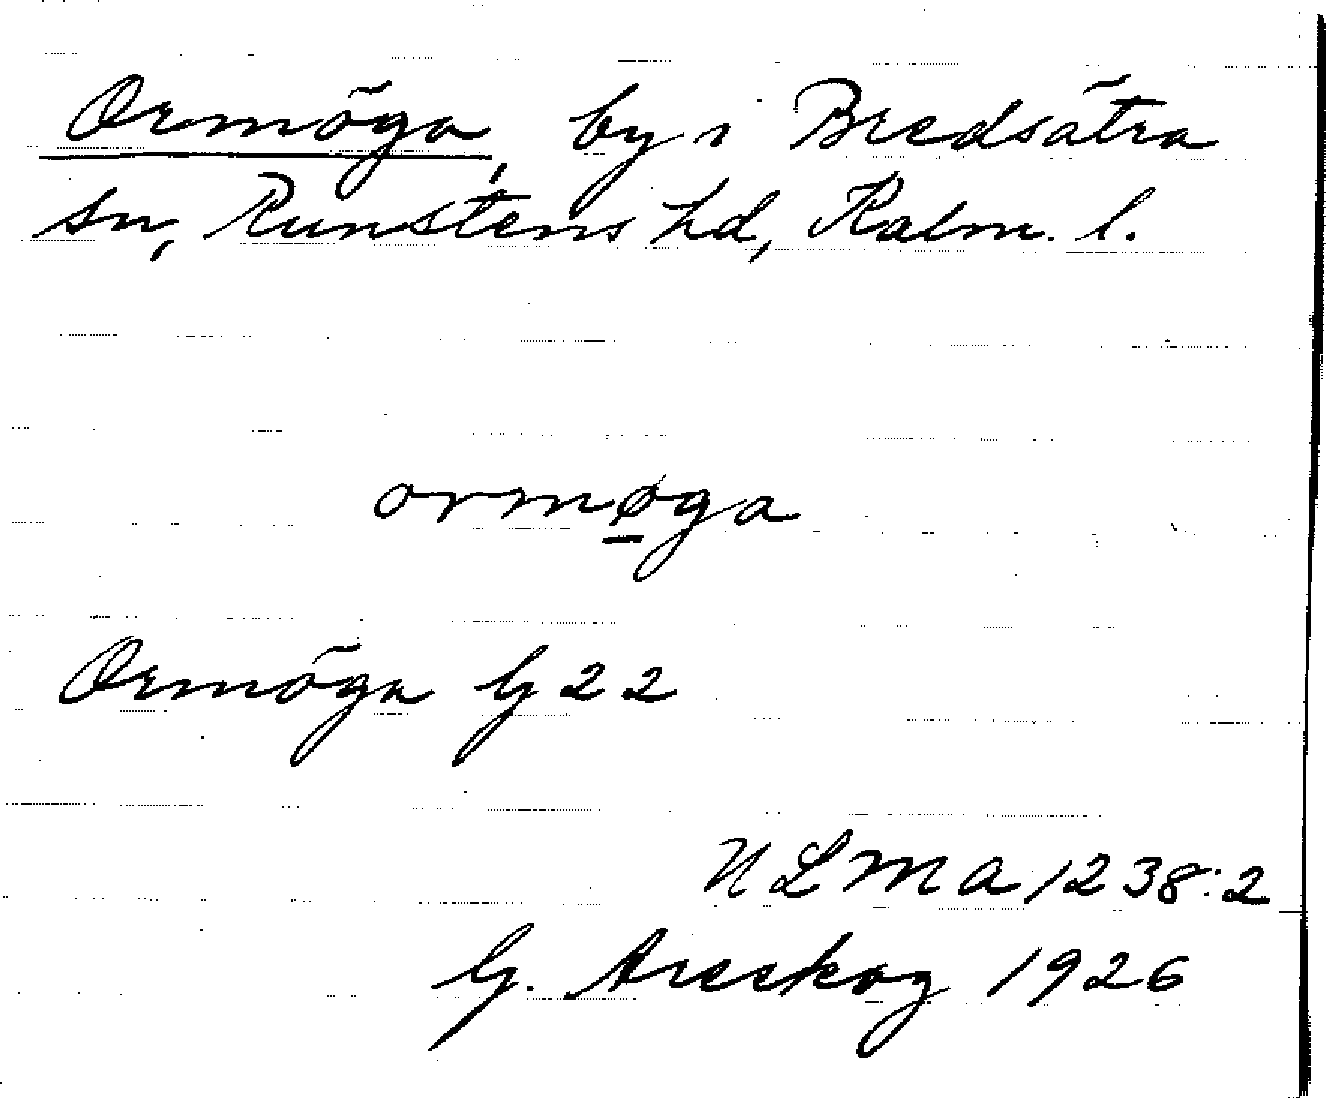 Ormöga, by i Bredsätra
sn, Runstens hd, Kalm. l.
ormøga
Ormöga G 22
ULMA 1238:2
G. Areskog 1926